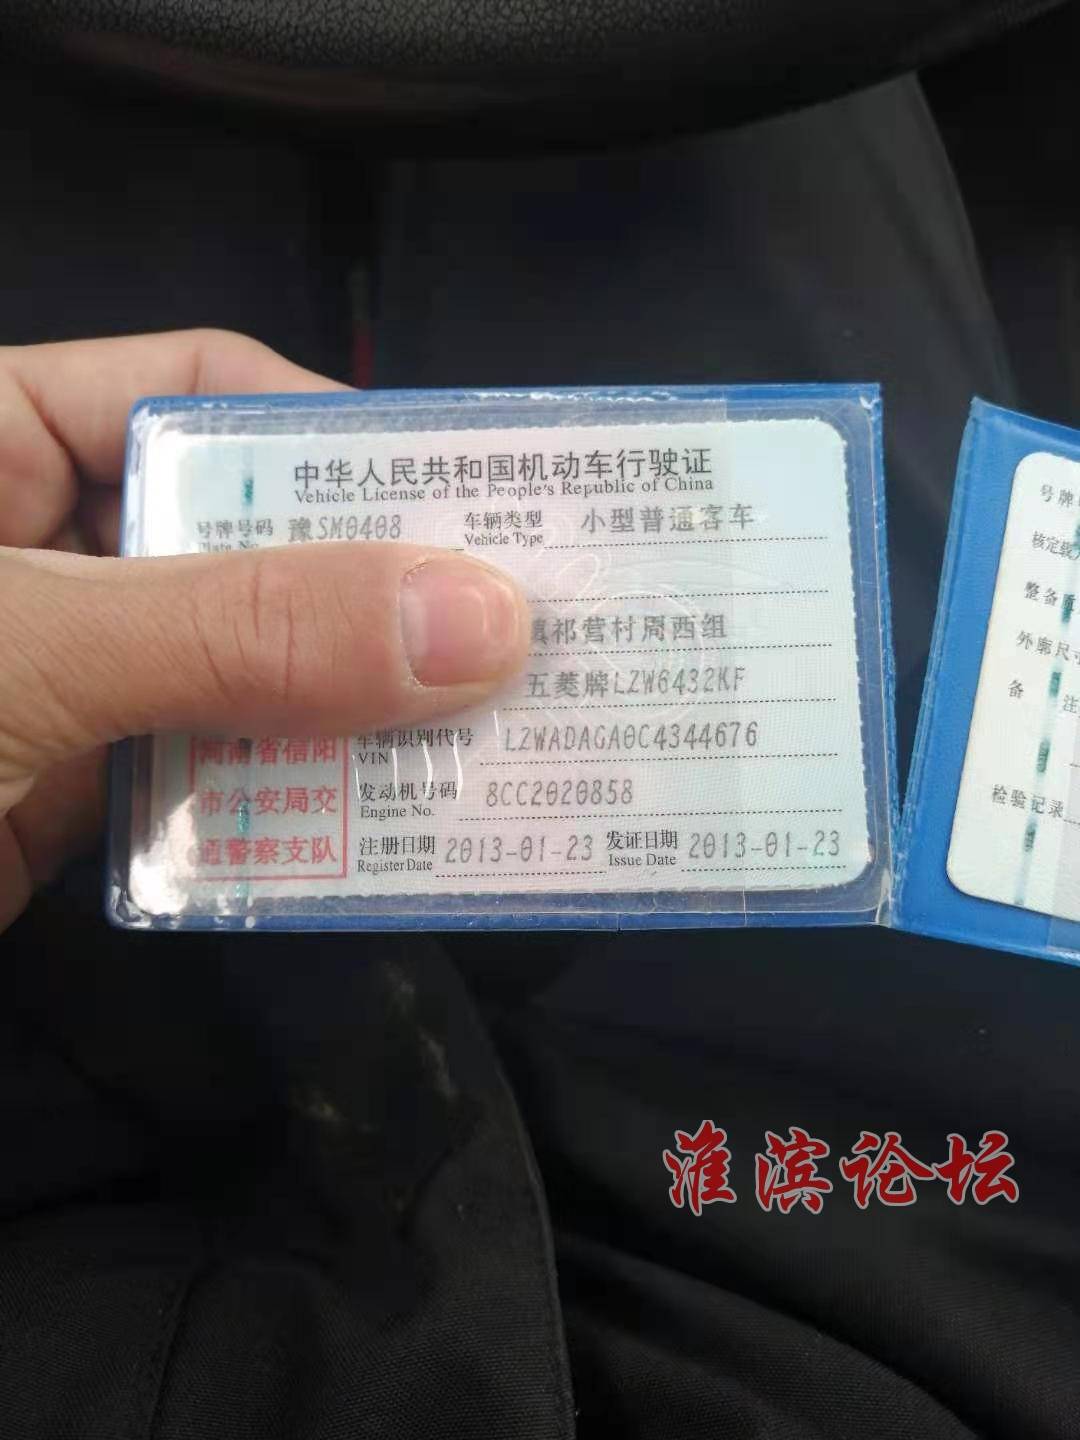 中华人民共和国机动车行驶证
Vehicle License of the People's Republic of China
号牌号码 豫SM0408 车辆类型 小型普通客车
Plate No. Vehicle Type
镇祁营村周西组
五菱牌LZW6432KF
车辆识别代号 LZWADAGA0C4344676
VIN
发动机号码 8CC2020858
Engine No.
注册日期 2013-01-23 发证日期 2013-01-23
Register Date Issue Date
河南省信阳
市公安局交
通警察支队
号牌
核定载
整备质
外廓尺寸
备 注
检验记录
淮滨论坛